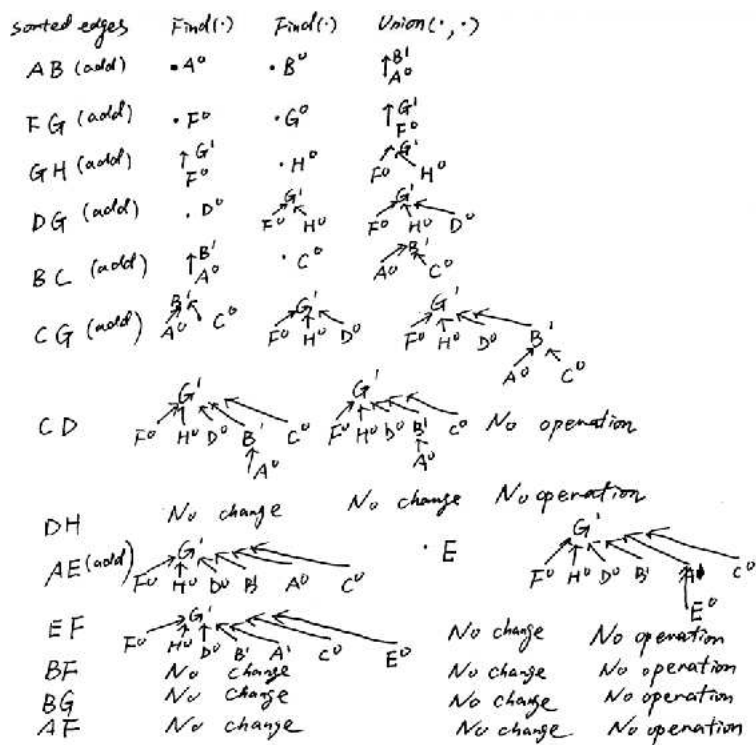 sorted edges Find(·) Find(·) Union(·,·)
AB (add) ·A⁰ ·B⁰ ↑B¹
A⁰
FG (add) ·F⁰ ·G⁰ ↑G¹
F⁰
GH (add) ↑G¹ ·H⁰ G¹
F⁰ F⁰ H⁰
DG (add) ·D⁰ G¹ G¹
F⁰ H⁰ F⁰ H⁰ D⁰
BC (add) ↑B¹ ·C⁰ B¹
A⁰ A⁰ C⁰
CG (add) B¹ G¹ G¹
A⁰ C⁰ F⁰ H⁰ D⁰ F⁰ H⁰ D⁰ B¹
A⁰ C⁰
G¹ G¹
CD F⁰ H⁰ D⁰ B¹ C⁰ F⁰ H⁰ D⁰ B¹ C⁰ No operation
A⁰ A⁰
DH No change No change No operation
AE (add) G¹ ·E G¹
F⁰ H⁰ D⁰ B¹ A⁰ C⁰ F⁰ H⁰ D⁰ B¹ A¹ C⁰
E⁰
EF G¹ No change No operation
F⁰ H⁰ D⁰ B¹ A¹ C⁰ E⁰
BF No change No change No operation
BG No change No change No operation
AF No change No change No operation